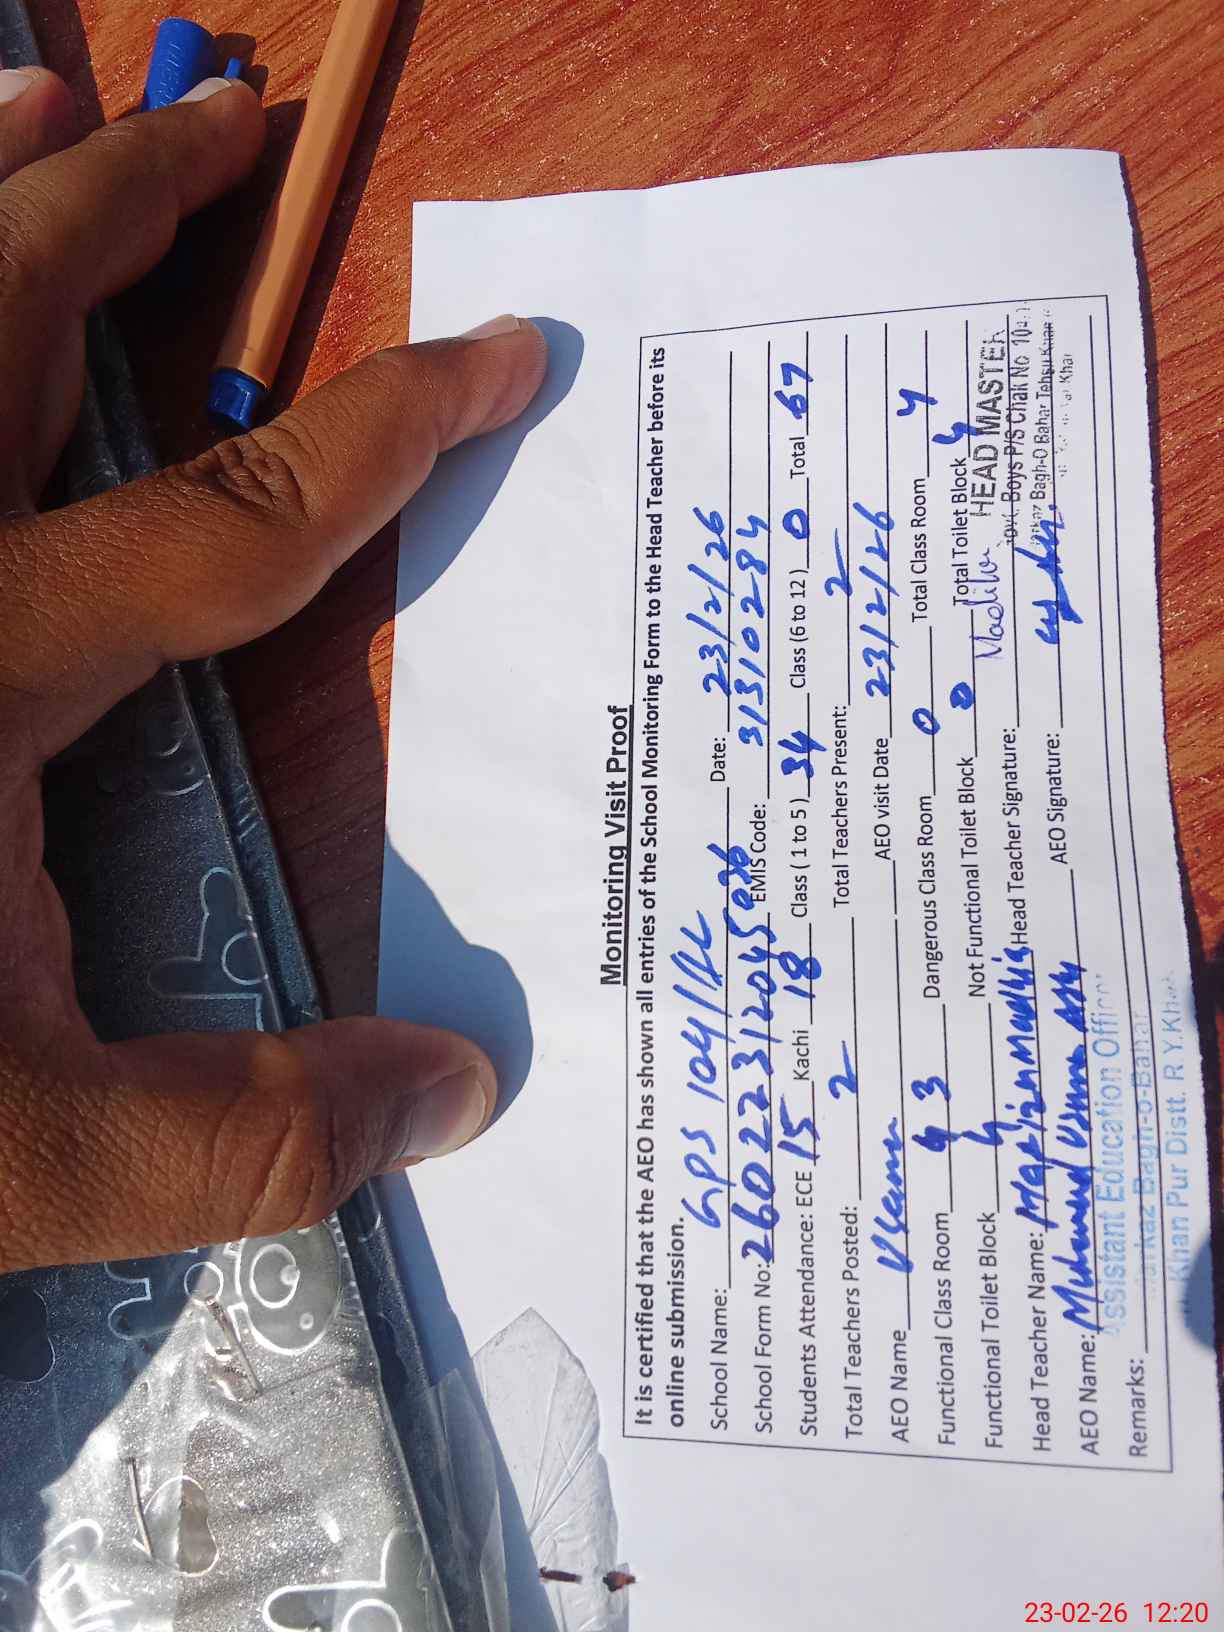 Monitoring Visit Proof
It is certified that the AEO has shown all entries of the School Monitoring Form to the Head Teacher before its
online submission.
School Name: GPS 104/1L Date: 23/2/26
School Form No: 26022312045036 EMIS Code: 31310284
Students Attendance: ECE 15 Kachi 18 Class ( 1 to 5 ) 34 Class (6 to 12 ) 0 Total 67
Total Teachers Posted: 2 Total Teachers Present: 2
AEO Name Usama AEO visit Date 23/2/26
Functional Class Room 3 Dangerous Class Room 0 Total Class Room 4
Functional Toilet Block 4 Not Functional Toilet Block 0 Total Toilet Block 4
Head Teacher Name: Head Teacher Signature: HEAD MASTER
Govt. Boys P/S Chak No
Markaz Bagh-O Bahar Tehsil Khan
Khan
AEO Name: Muhammad Usama AEO Signature:
Assistant Education Officer
Remarks: Markaz Bagh-o-Bahar
Khan Pur Distt. R.Y.Khan
23-02-26 12:20